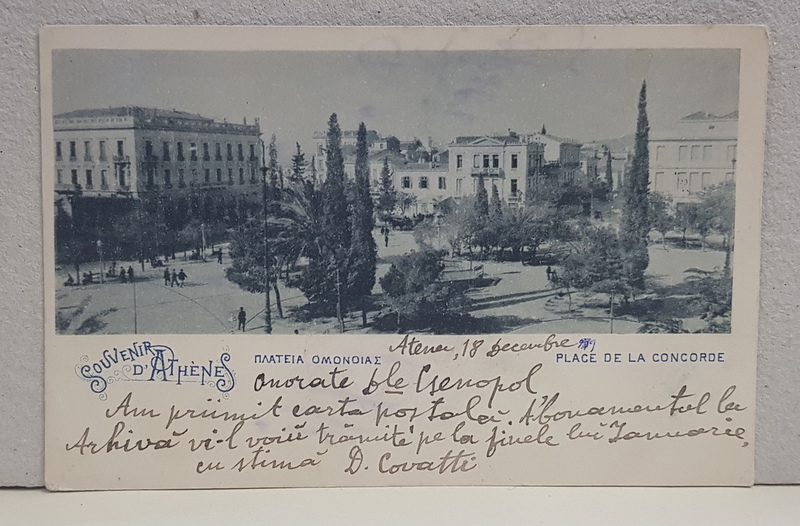 SOUVENIR D'ATHÈNES
ΠΛΑΤΕΙΑ ΟΜΟΝΟΙΑΣ
PLACE DE LA CONCORDE
Atena, 18 Decembre
Onorate Dle Xenopol
Am priimit carta poștală. Abonamentul la
Arhivă vi-l voiu trămite pe la finele lui Januarie,
cu stimă D. Covatti